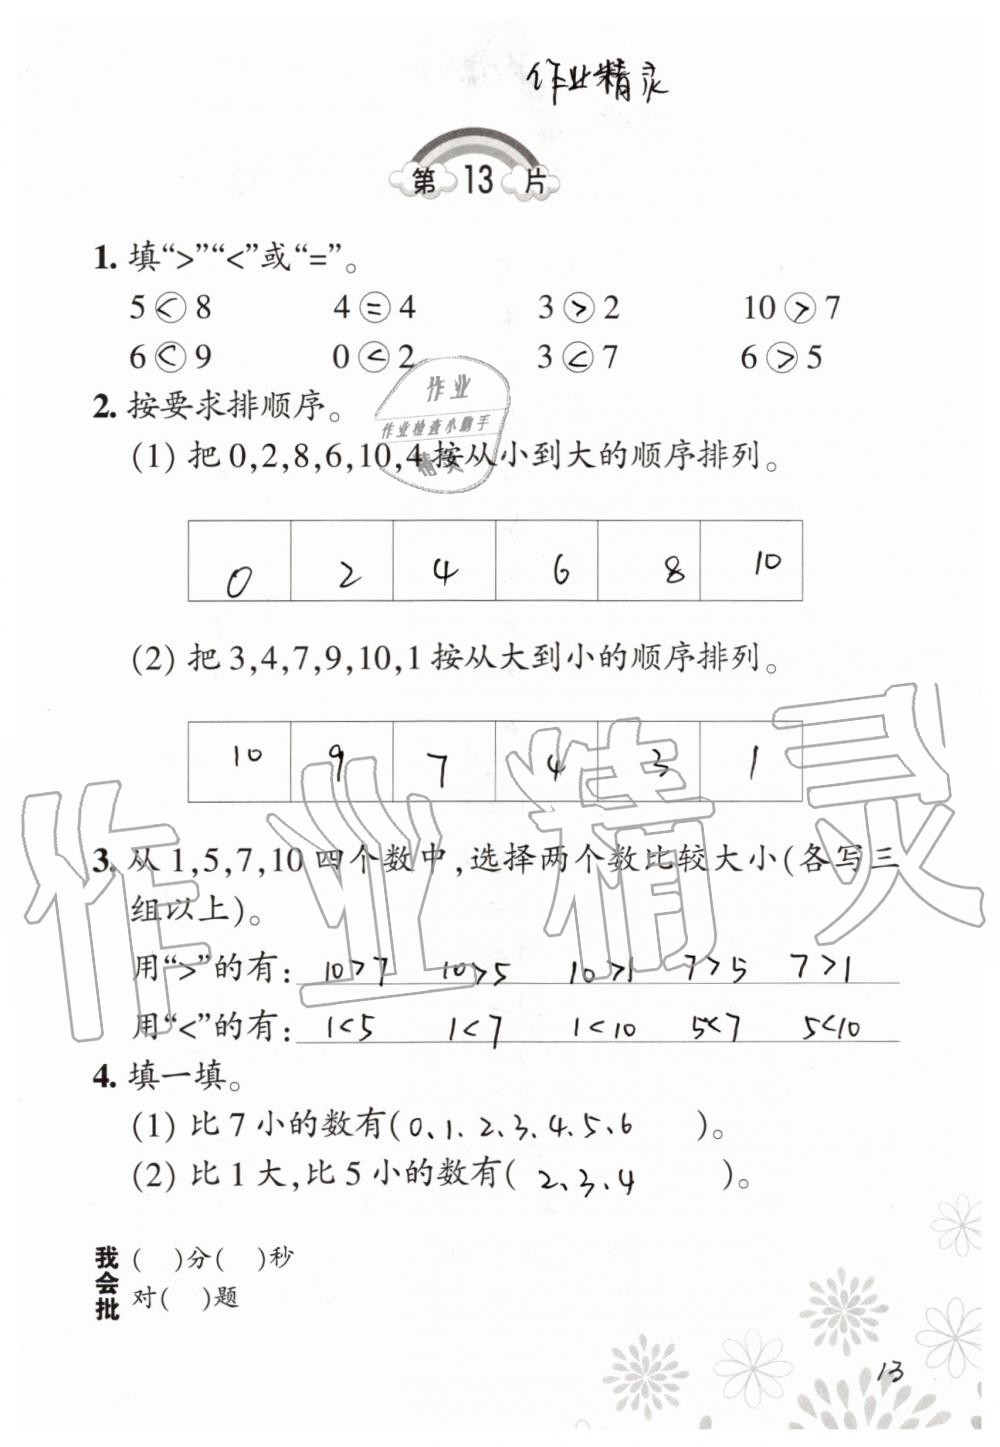 作业精灵
第 13 片
1. 填“>”“<”或“=”。
5 < 8 4 = 4 3 > 2 10 > 7
6 < 9 0 < 2 3 < 7 6 > 5
2. 按要求排顺序。
作业
作业检查小助手
精灵
(1) 把 0,2,8,6,10,4 按从小到大的顺序排列。
0 2 4 6 8 10
(2) 把 3,4,7,9,10,1 按从大到小的顺序排列。
10 9 7 4 3 1
作业精灵
3. 从 1,5,7,10 四个数中,选择两个数比较大小(各写三
组以上)。
用“>”的有: 10>7 10>5 10>1 7>5 7>1
用“<”的有: 1<5 1<7 1<10 5<7 5<10
4. 填一填。
(1) 比 7 小的数有(0、1、2、3、4、5、6 )。
(2) 比 1 大,比 5 小的数有( 2、3、4 )。
我会批
( )分( )秒
对( )题
13